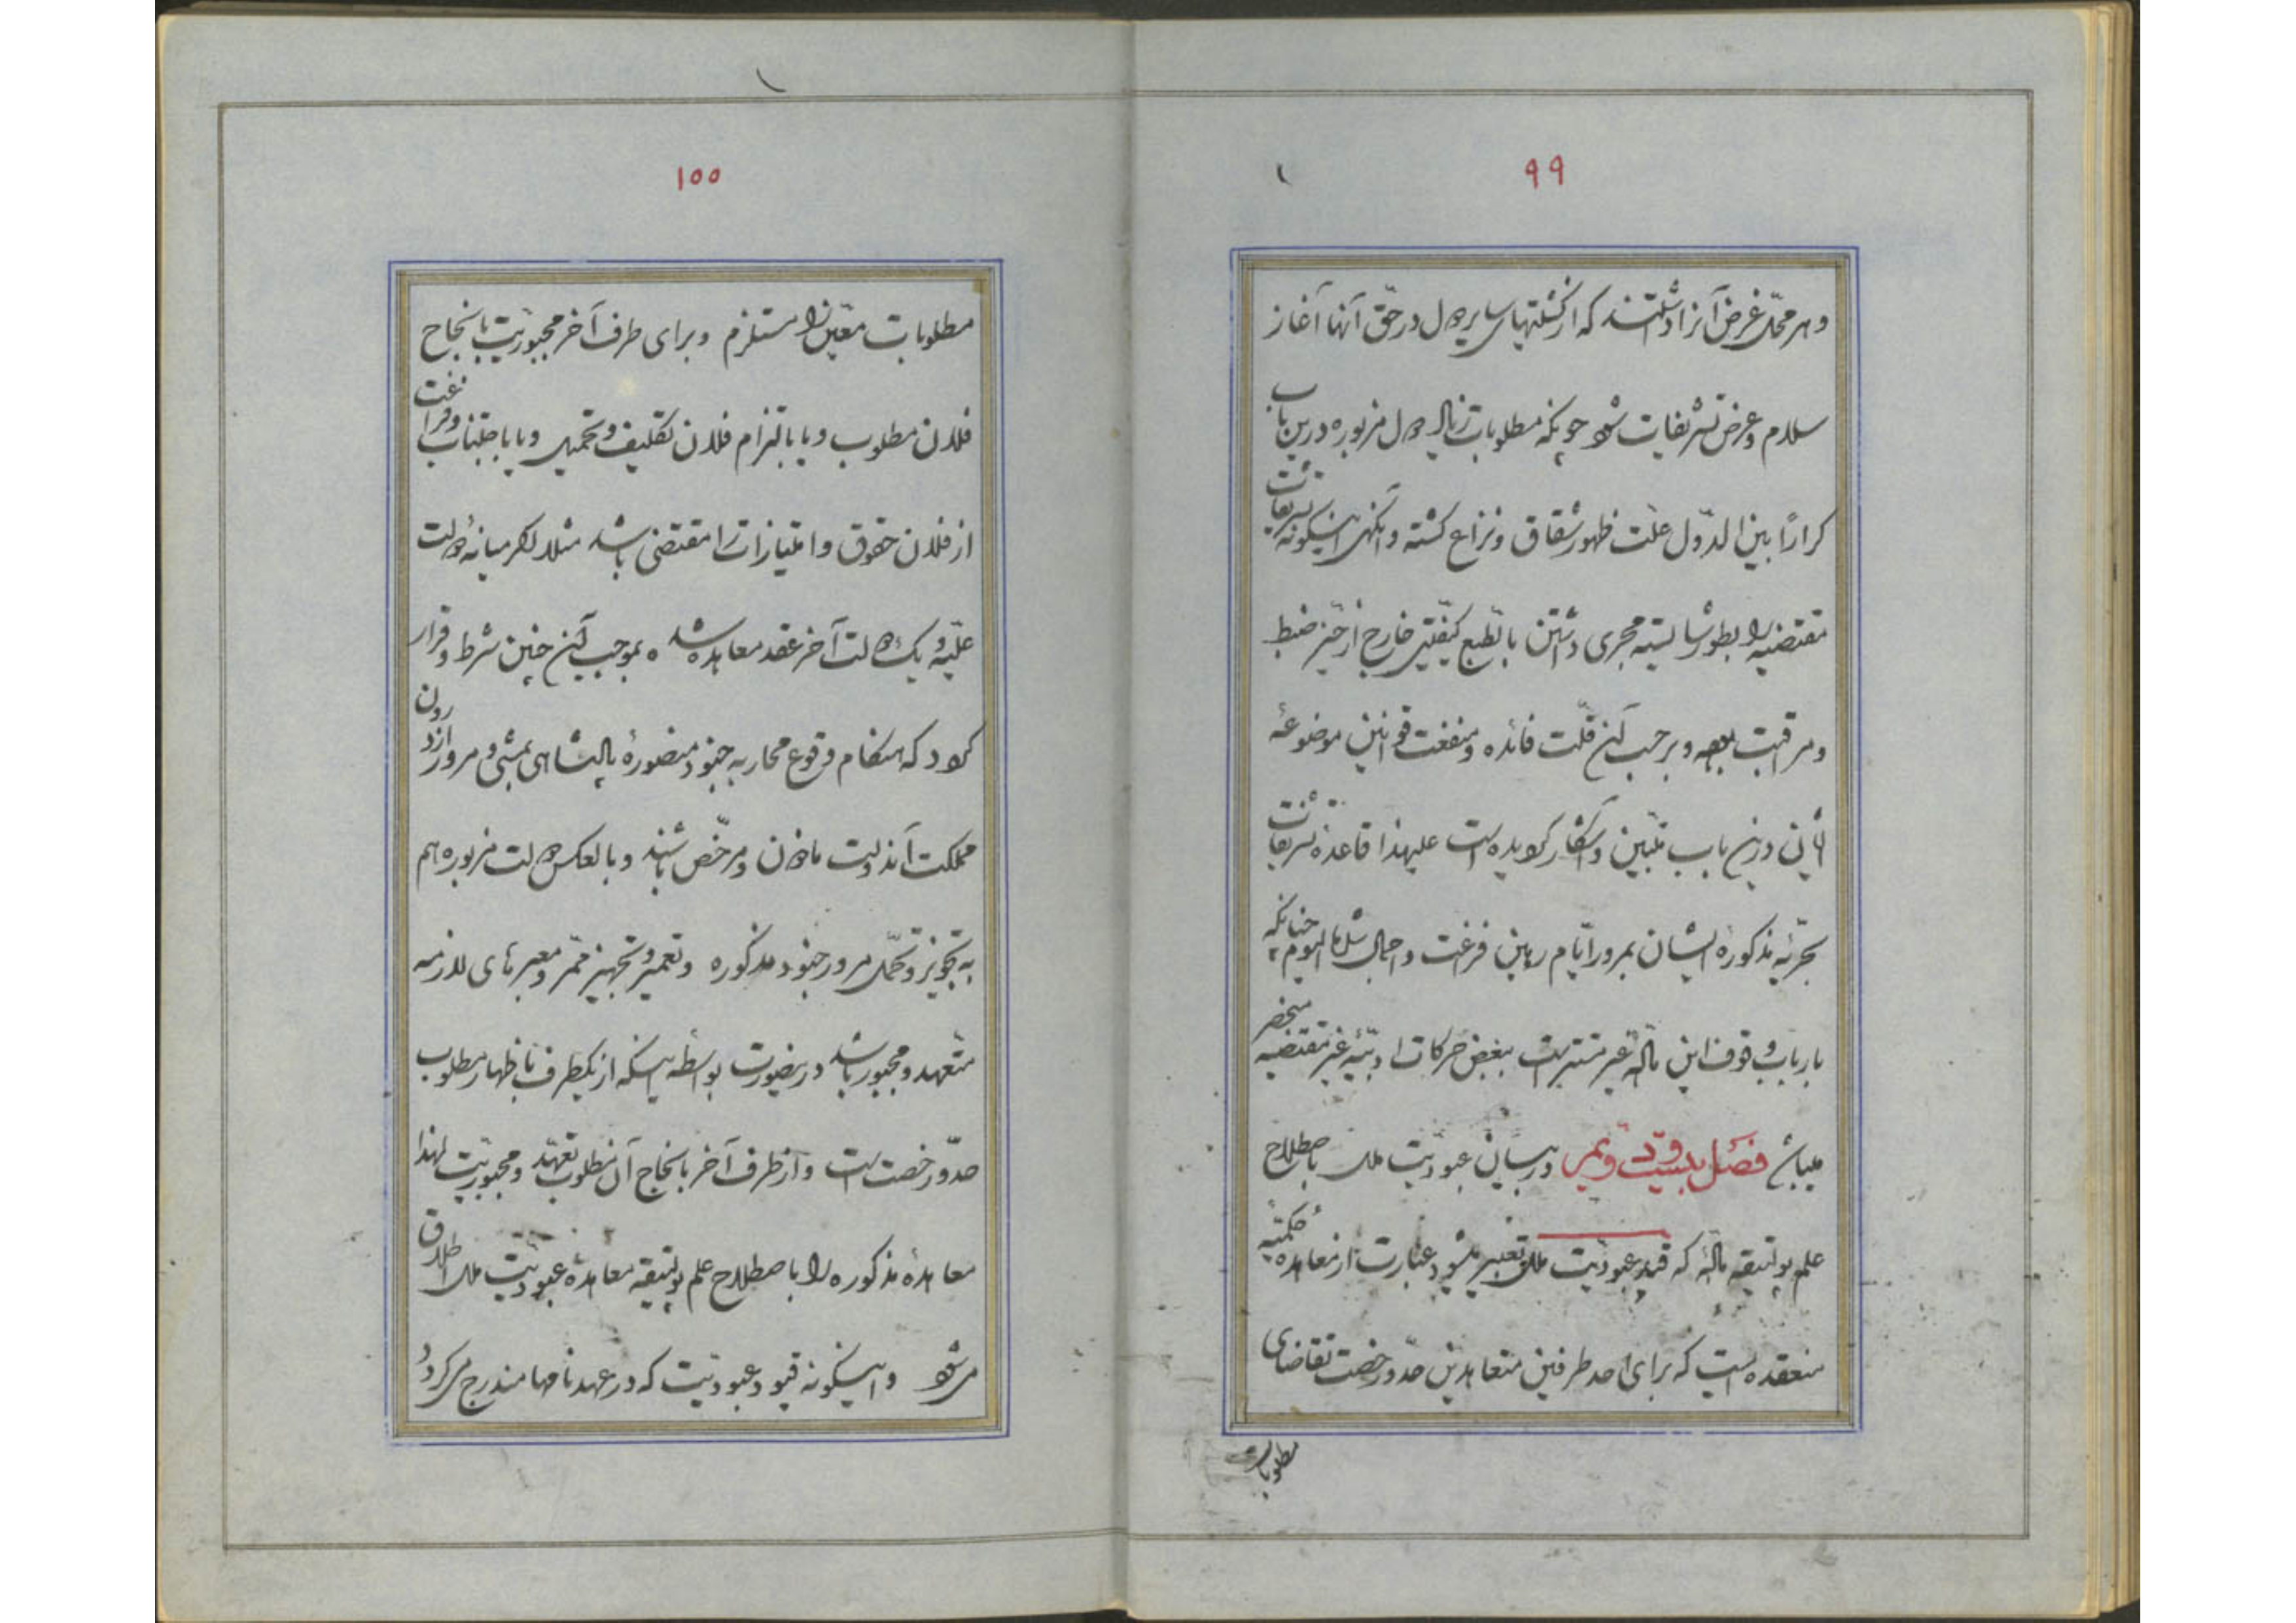 ۹۹
و هر محل غرض آنرا داشتند که از کشتیهای سایر دول در حق آنها آغاز
سلام و عرض تشریفات شود چونکه مطلوبات دول مزبوره درین باب
کراراً بین الدول علت ظهور شقاق و نزاع گشته و اینگونه تشریفات
مقتضیه را بطور شایسته مجری داشتن بالطبع کیفیتی خارج از حیز ضبط
و مراقبت بوده و بر حسب آن قلت فائده و منفعت قوانین موضوعهٔ
درین باب مبین و آشکار گردیده است علیهذا قاعدهٔ تشریفات
بحریهٔ مذکورهٔ ایشان بمرور ایام رهین فراغت و اهمال شد تا الیوم چنانکه
بارباب وقوف این ماله غیر مستتر است ببعض حرکات ادبیّهٔ غیر مقتضیه منحصر
میباشد فصل بیست و یکم در بیان عبودیت ملک باصطلاح
علم پولتیقه مالهٔ که قید عبودیت ملک تعبیر میشود عبارت از معاهدهٔ حکمیّهٔ
منعقده است که برای احد طرفین متعاهدین حد و رخصت تقاضای
مطلوبات
۱۰۰
مطلوبات معین را مستلزم و برای طرف آخر مجبوریت بانجاح
فلان مطلوب و یا بالتزام فلان تکلیف و تحمیل و یا باجتناب و فراغت
از فلان حقوق و امتیازات را مقتضی باشد مثلا اگر میانهٔ دولت
علیّه و یک دولت آخر عقد معاهده شده بموجب آن چنین شرط و قرار
گردد که هنگام وقوع محاربه جنود منصورهٔ پادشاهی بمشی و مرور از درون
مملکت آندولت ماذون و مرخص باشند و بالعکس دولت مزبوره هم
به تجویز و تحمل مرور جنود مذکوره و تعمیر و تجهیز ممر و معبرهای لازمه
متعهد و مجبور باشد درینصورت بواسطه اینکه از یکطرف باظهار مطلوب
حد و رخصت است و از طرف آخر بانجاح آن مطلوب تعهد و مجبوریت لهذا
معاهدهٔ مذکوره را باصطلاح علم پولتیقه معاهدهٔ عبودیت ملک اطلاق
میشود و اینگونه قیود عبودیت که در عهدنامها مندرج میگردد